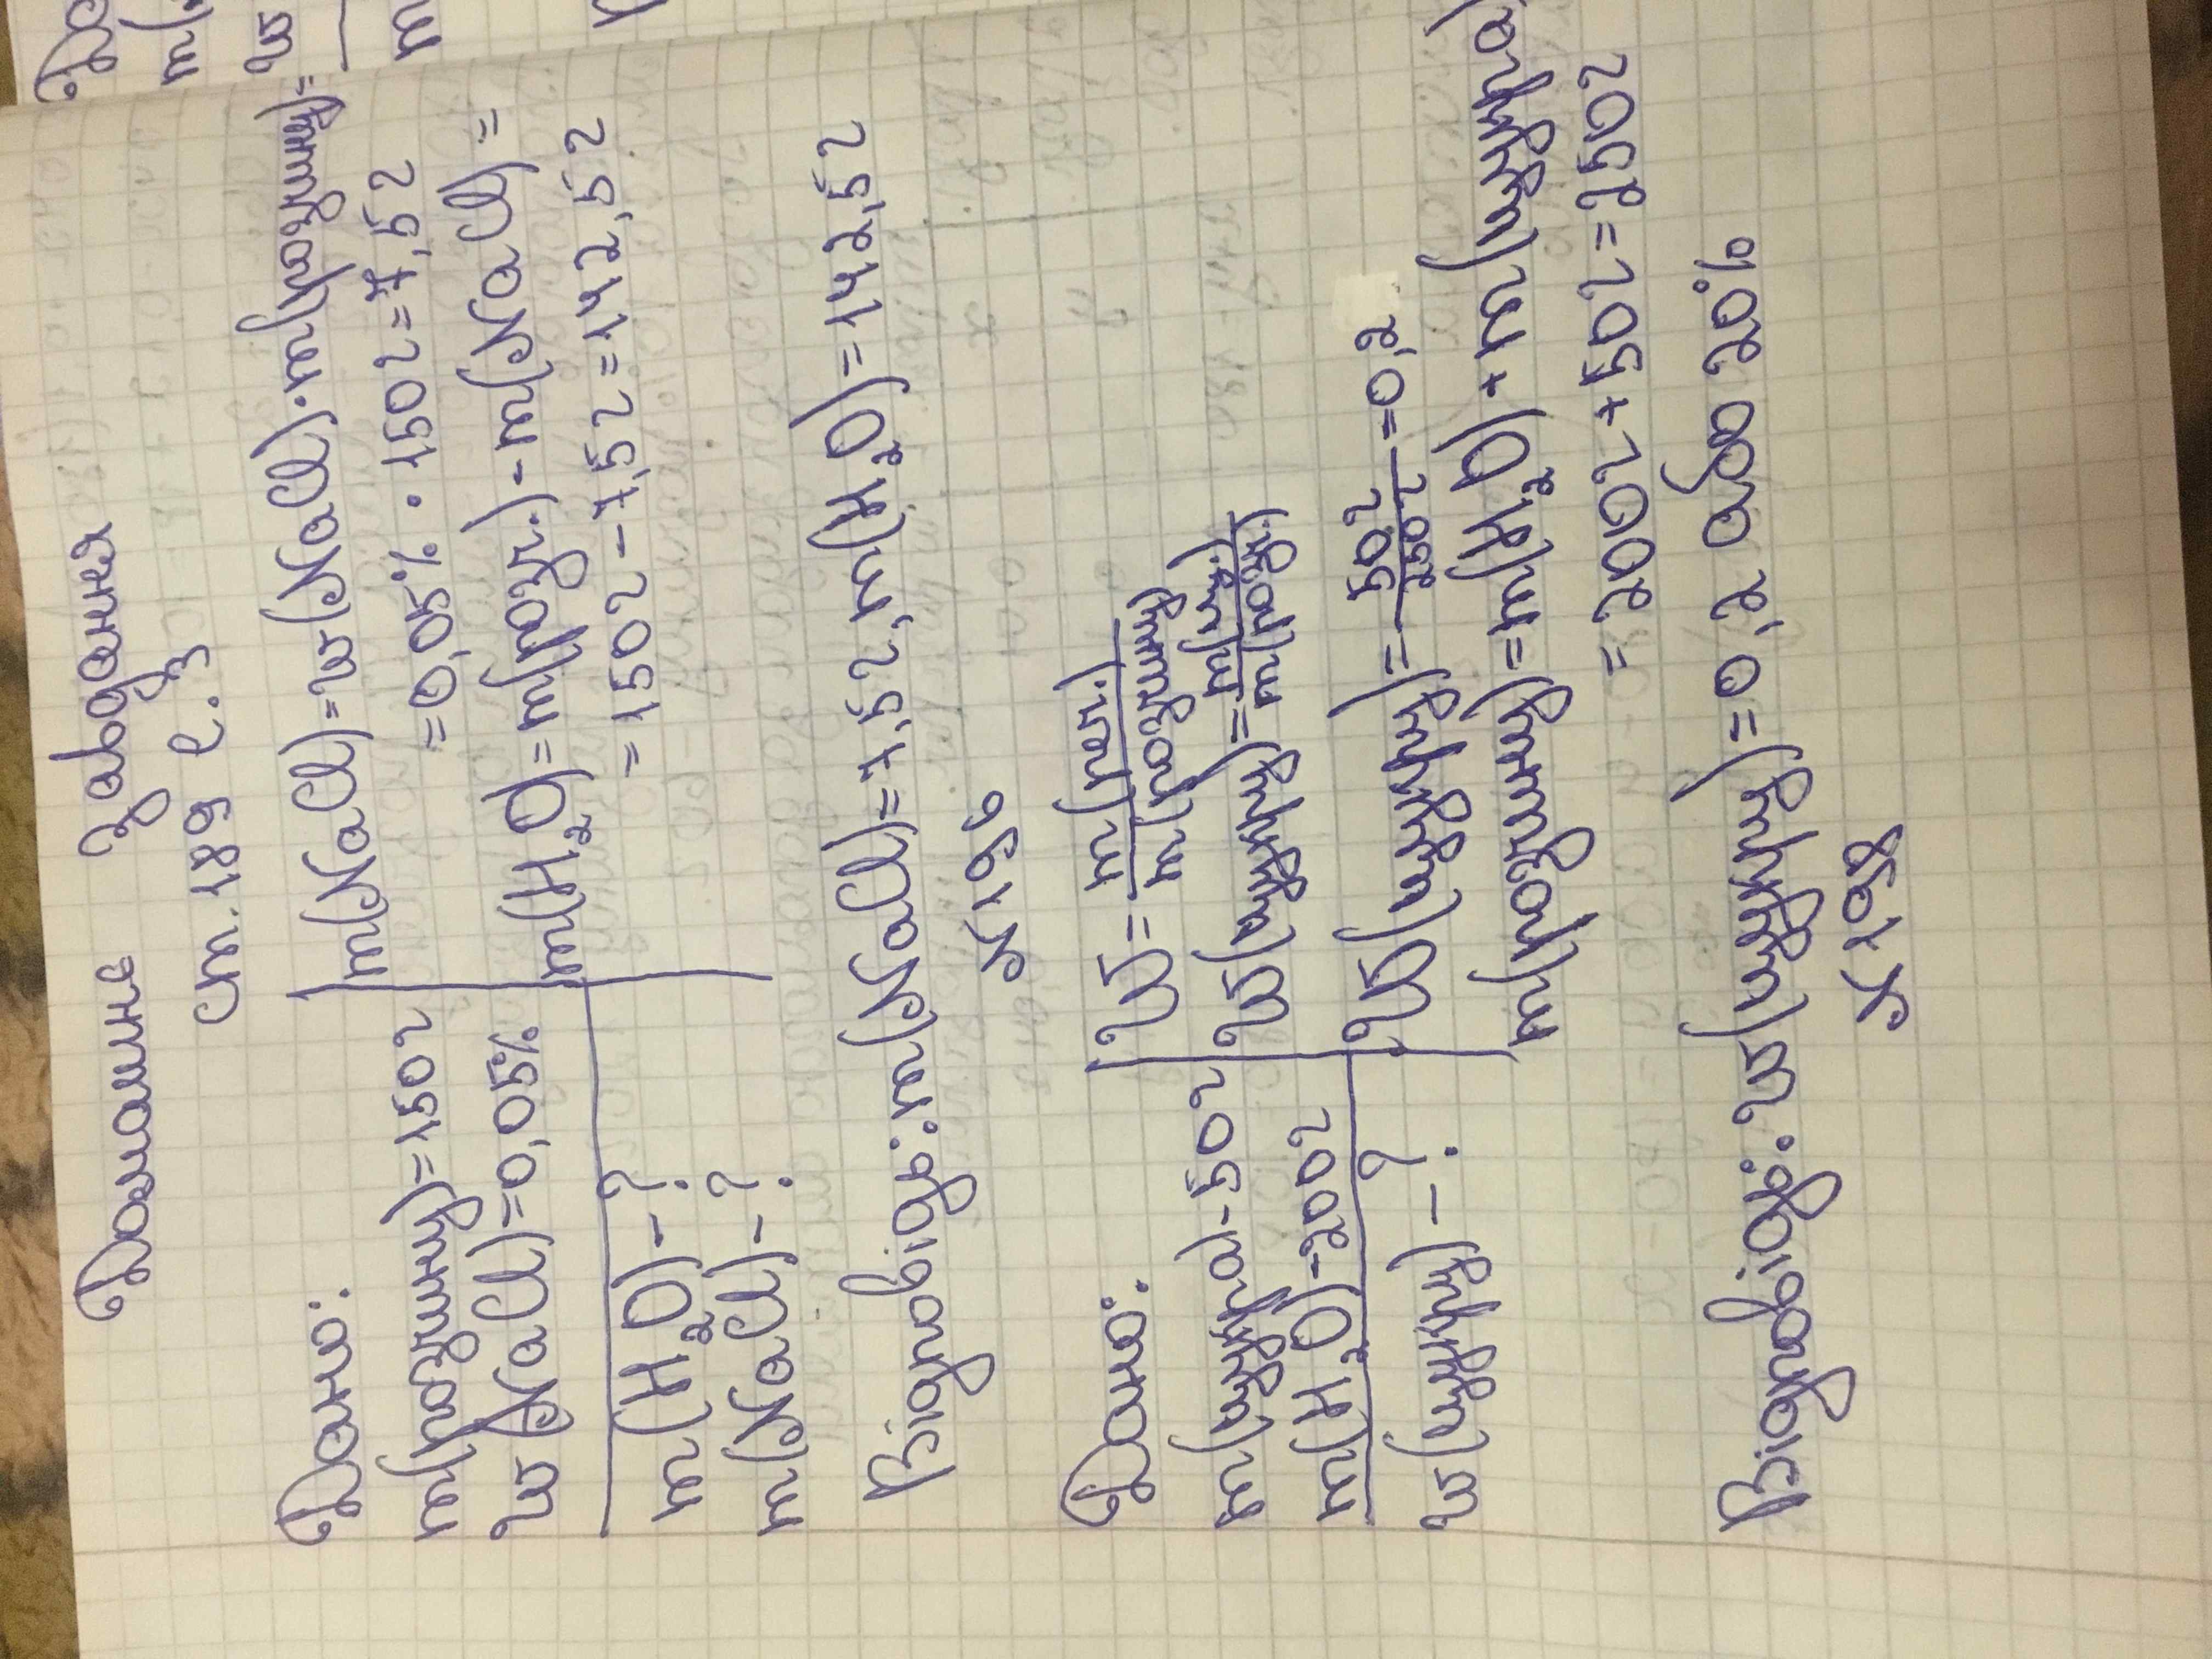 Домашнє завдання
ст. 189 в. 3
Дано:
m(розчину)=150г
w(NaCl)=0,05%
m(H₂O)-?
m(NaCl)-?
m(NaCl)=w(NaCl)·m(розчину)=
=0,05%·150г=7,5г
m(H₂O)=m(розч.)-m(NaCl)=
=150г-7,5г=142,5г
Відповідь: m(NaCl)=7,5г, m(H₂O)=142,5г
№196
Дано:
m(цукра)-50г
m(H₂O)-200г
w(цукру)-?
W=m(реч.)/m(розчину)
W(цукру)=m(цук.)/m(розч.)
W(цукру)=50г/250г=0,2
m(розчину)=m(H₂O)+m(цукра)
=200г+50г=250г
Відповідь: w(цукру)=0,2 або 20%
№198
До
m(
w
m